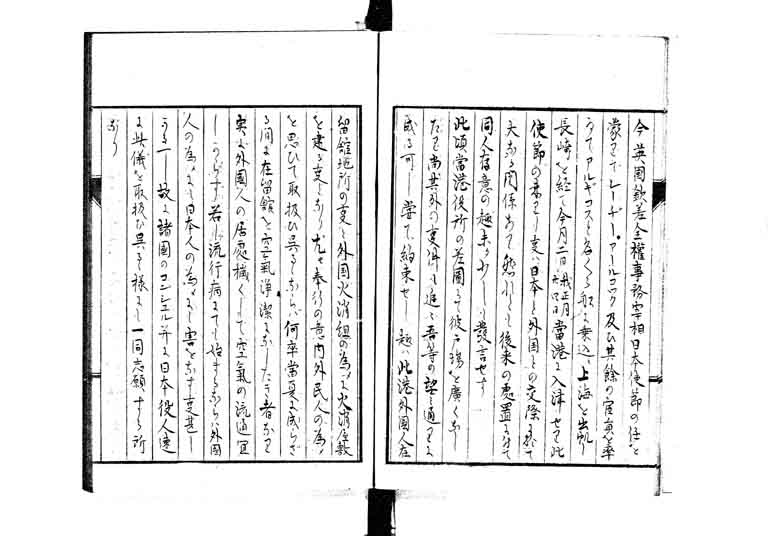 今英国欽差全權事務宰相日本使節の任を
蒙りてレーヂー。アールコック及ひ其餘の官員を率
うてアルギコスと名くる船に乗込ミ上海を出帆し
長崎を経て今月二日我正月六四日當港に入津せり此
使節の来りし事ハ日本と外国との交際に於て
大なる関係ありて然れとも後来の処置に付て
同人存意の趣未た少しも發言せす
此頃當港役所の差圖にて彼戸場を廣くなし
たり尚其外の事件も追々吾等の望之通りに
成る可し嘗て約束せし趣ハ此港外国人在
留舘地所の事と外国火消組の為に火消屋敷
を建る事なり尤も奉行の意内外民人の為め
を思ひて取扱ひ呉るゝならハ何卒當夏に成らさ
る間に在留舘を空氣浄潔になしたき者なり
実に外国人の居處穢くして空氣の流通宜
しからす若し流行病にても始まるならハ外国
人の為にも日本人の為にも害をなす事甚し
かるへし故に諸国のコンシュル并に日本役人速
に此儀を取扱ひ呉るゝ様にし一同志願する所
なり